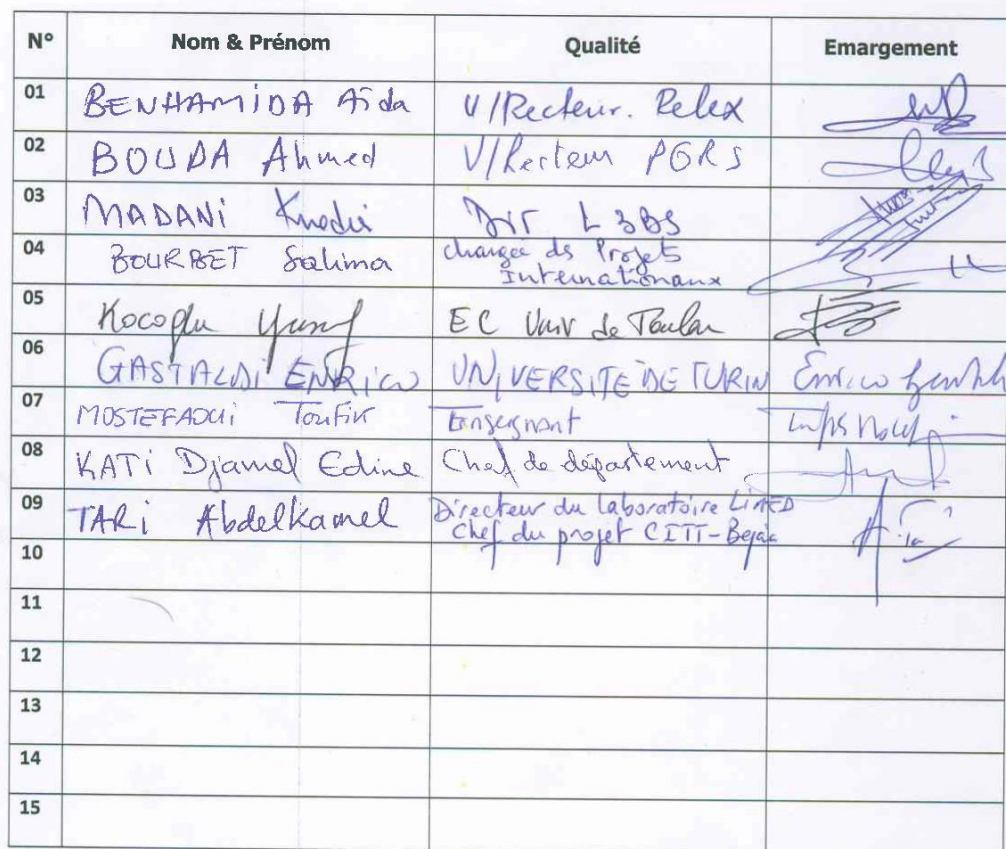 N° Nom & Prénom Qualité Emargement
01 BENHAMIDA Aïda V/Recteur. Relex
02 BOUDA Ahmed V/Recteur PGRS
03 MADANI Dir L3BS
04 BOURBET Salima chargée ds Projets
Internationaux
05 Kocoglu Yusuf EC Univ de Toulon
06 GASTALDI ENRICO UNIVERSITE DE TURIN Enrico
07 MOSTEFAOUI Toufik Enseignant
08 KATI Djamel Edine Chef de département
09 TARI Abdelkamel Directeur du laboratoire LIMED
Chef du projet CITT-Bejaia
10
11
12
13
14
15